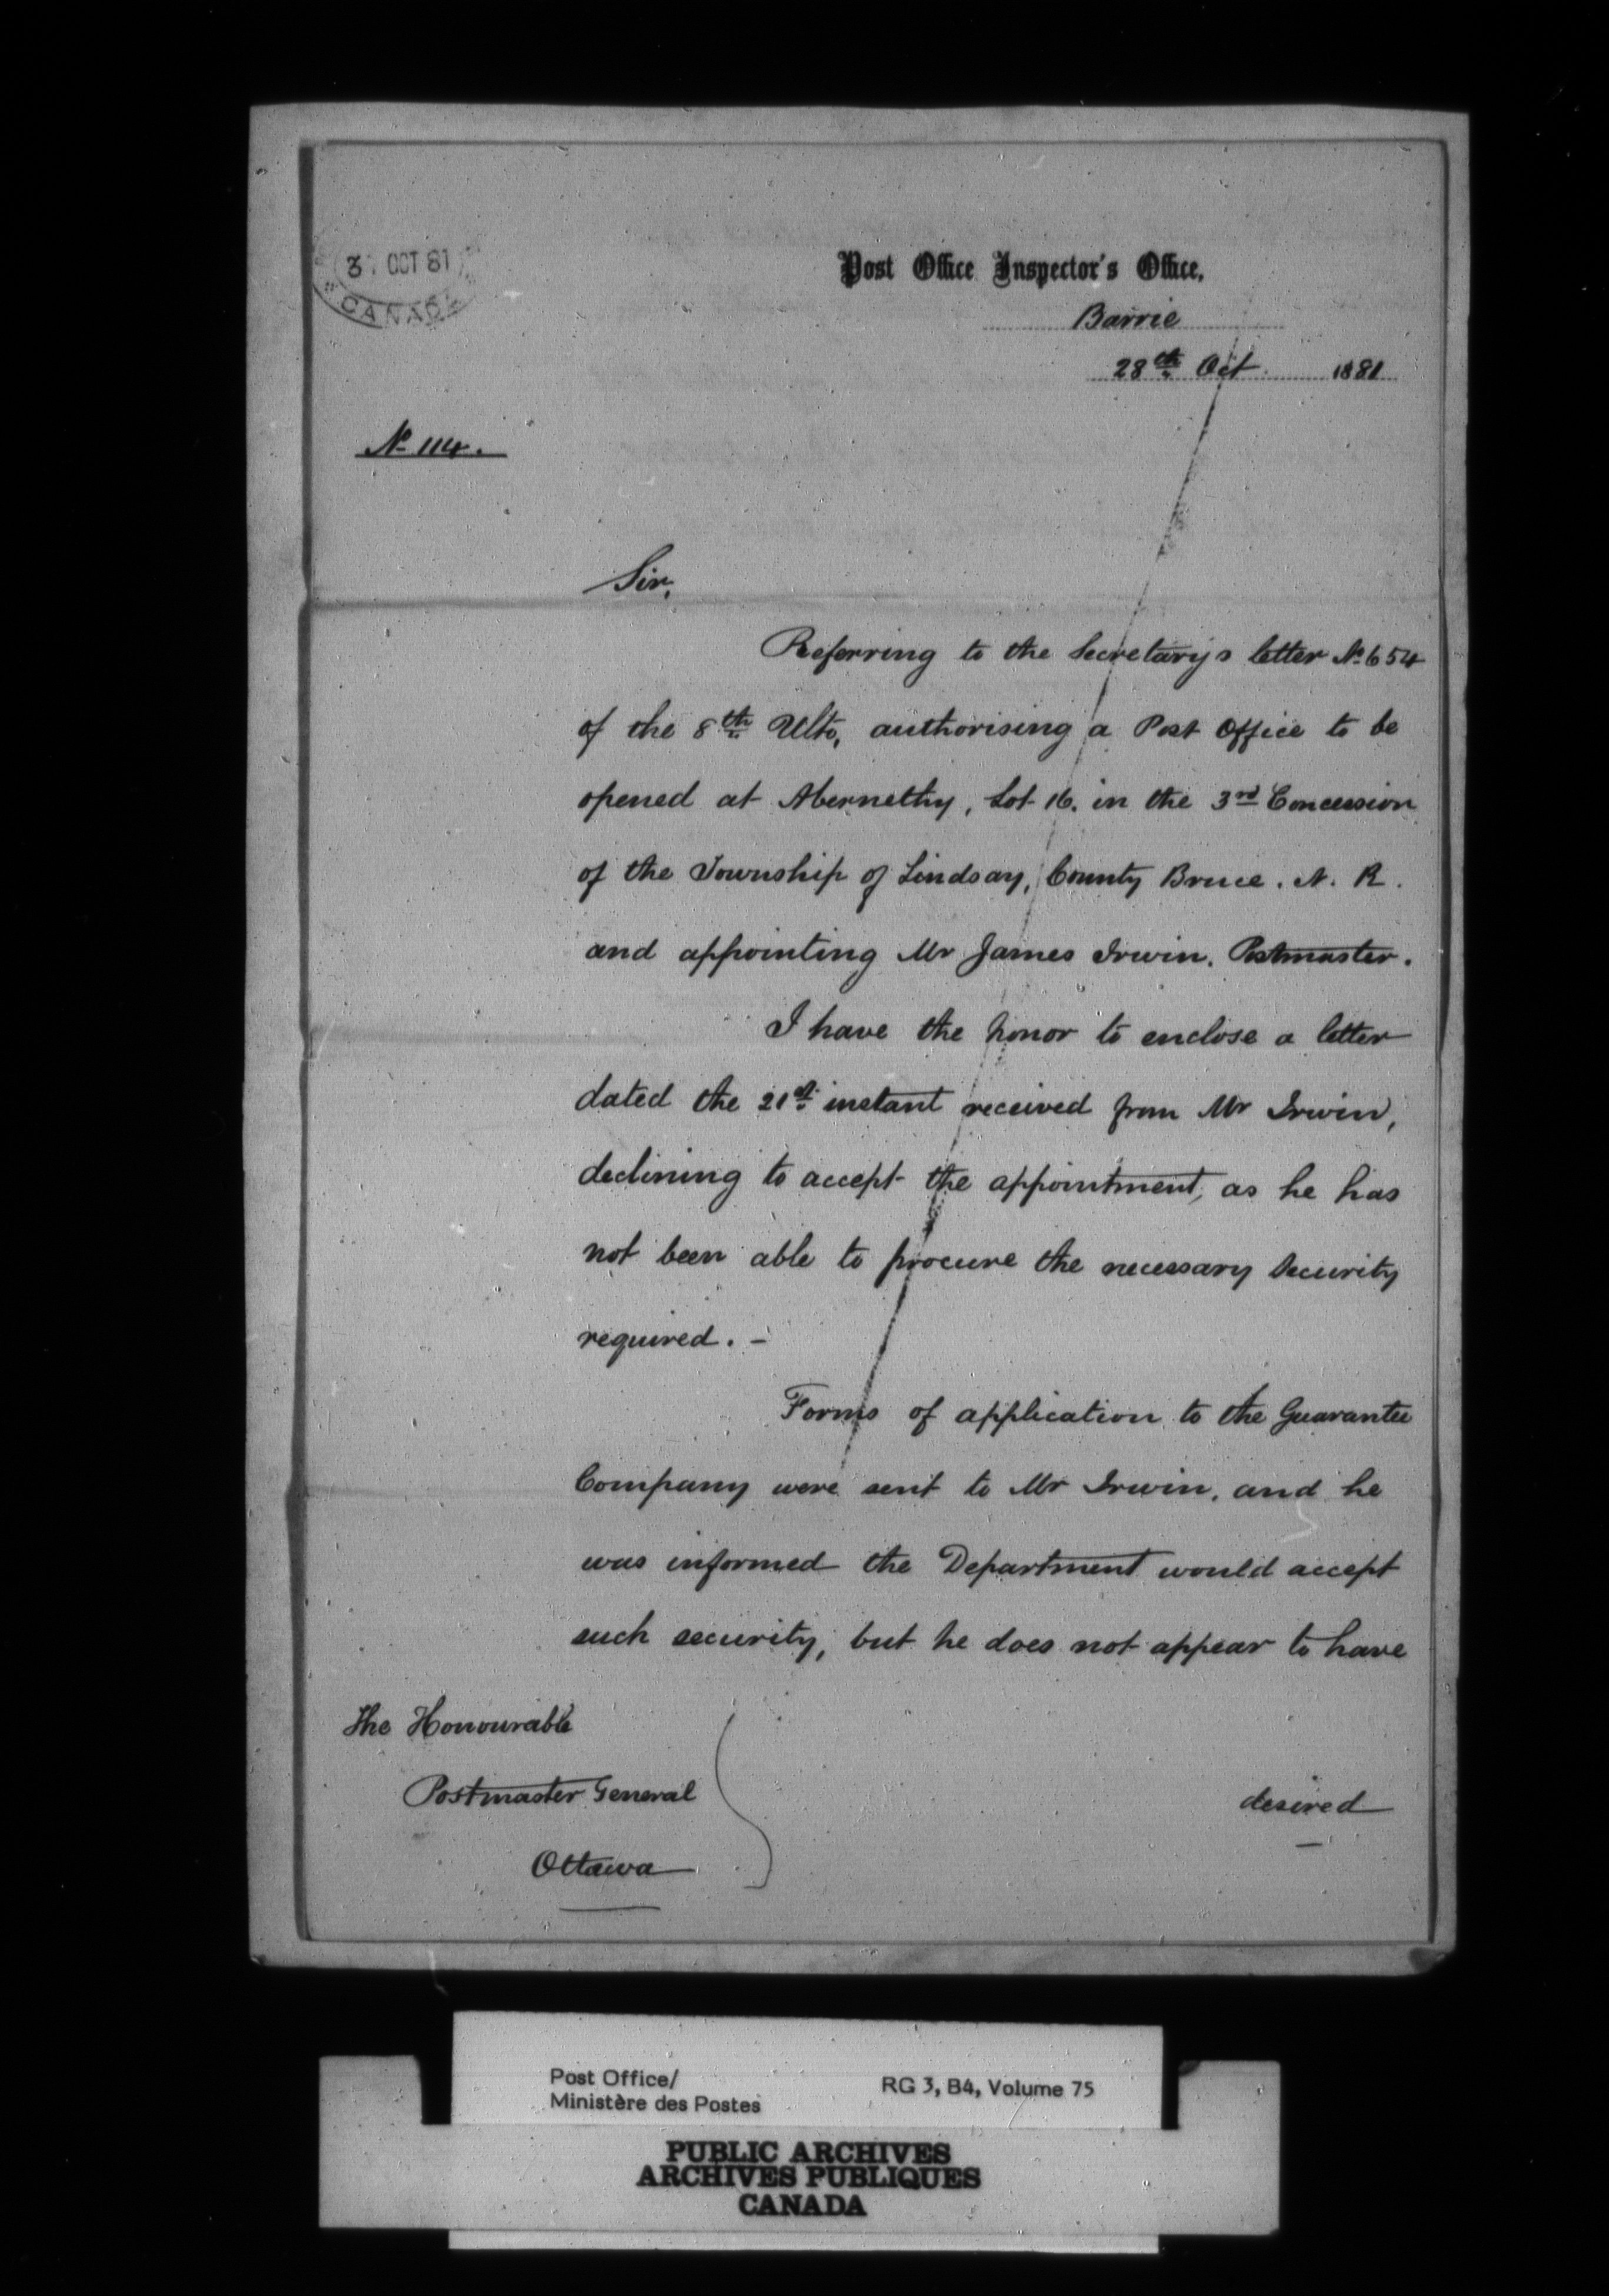 31 OCT 81
CANADA
Post Office Inspector's Office.
Barrie
28th Oct. 1881
No 114.
Sir,
Referring to the Secretary's letter No 654
of the 8th Ulto, authorising a Post Office to be
opened at Abernethy, Lot 16. in the 3rd Concession
of the Township of Lindsay, County Bruce. N. R.
and appointing Mr James Irwin. Postmaster.
I have the honor to enclose a letter
dated the 21st instant received from Mr Irwin,
declining to accept the appointment, as he has
not been able to procure the necessary Security
required. -
Forms of application to the Guarantee
Company were sent to Mr Irwin, and he
was informed the Department would accept
such security, but he does not appear to have
desired
The Honourable
Postmaster General
Ottawa
Post Office/
Ministère des Postes
RG 3, B4, Volume 75
PUBLIC ARCHIVES
ARCHIVES PUBLIQUES
CANADA